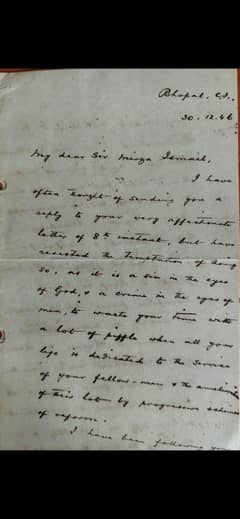 Bhopal, C.I.,
30.12.46
My dear Sir Mirza Ismail,
I have
often thought of sending you a
reply to your very affectionate
letter of 8th instant, but have
resisted the temptation of doing
so, as it is a sin in the eyes
of God, & a crime in the eyes of
men, to waste your time with
a lot of piffle when all your
life is dedicated to the service
of your fellow-men & the
of their lot by progressive schemes
of reform.
I have been following your